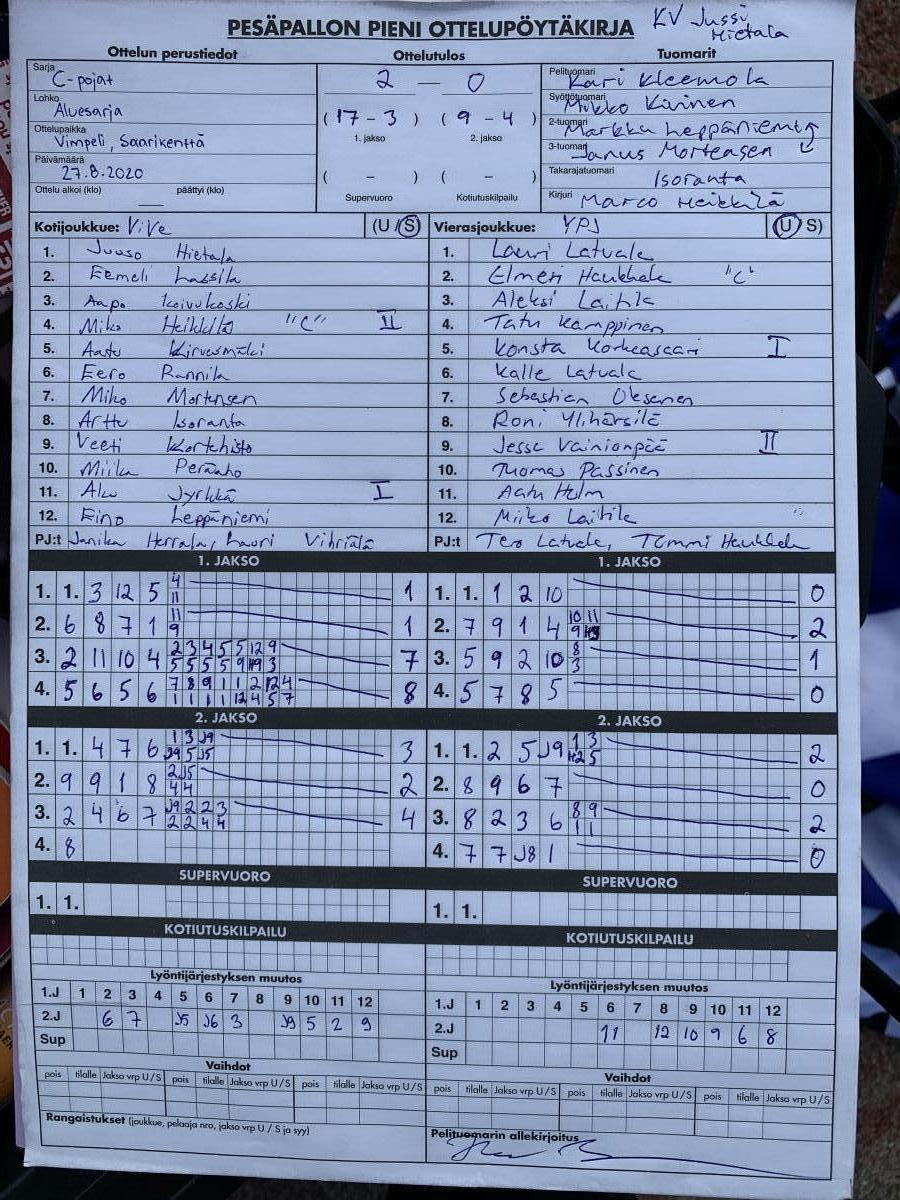 PESÄPALLON PIENI OTTELUPÖYTÄKIRJA
KV Jussi Hietala
Ottelun perustiedot
Sarja
C-pojat
Lohko
Aluesarja
Ottelupaikka
Vimpeli, Saarikenttä
Päivämäärä
27.8.2020
Ottelu alkoi (klo) päättyi (klo)
Ottelutulos
2 — 0
(17 - 3) (9 - 4)
1. jakso 2. jakso
( - ) ( - )
Supervuoro Kotiutuskilpailu
Tuomarit
Pelituomari
Kari Kleemola
Syöttötuomari
Mikko Kivinen
2-tuomari
Markku Leppäniemi
3-tuomari
Janus Mortensen
Takarajatuomari
Isoranta
Kirjuri
Marco Heikkilä
Kotijoukkue: ViVe (U / S)
1. Juuso Hietala
2. Eemeli Lassila
3. Aapo Koivukoski
4. Miko Heikkilä "C" II
5. Aatu Kirvesmäki
6. Eero Rannila
7. Miko Mortensen
8. Arttu Isoranta
9. Veeti Kortehisto
10. Miika Peräaho
11. Aku Jyrkkä I
12. Eino Leppäniemi
PJ:t Janika Herrala, Lauri Vihriälä
Vierasjoukkue: YPJ (U / S)
1. Lauri Latvala
2. Elmeri Haukkala "C"
3. Aleksi Laitila
4. Tatu Kamppinen
5. Konsta Korkeasaari I
6. Kalle Latvala
7. Sebastian Oksanen
8. Roni Ylihärsilä
9. Jesse Vainionpää II
10. Thomas Passinen
11. Aatu Holm
12. Miiko Laitila "
PJ:t Tero Latvala, Tommi Haukkala
1. JAKSO
1. 1. 3 12 5 4 1
11
2. 6 8 7 1 11 1
9
3. 2 11 10 4 2 3 4 5 5 12 9 7
5 5 5 5 9 3
4. 5 6 5 6 7 8 9 1 1 2 12 4 8
1 1 1 1 12 4 5 7
1. JAKSO
1. 1. 1 2 10 0
2. 7 9 1 4 10 11 2
9
3. 5 9 2 10 8 1
3
4. 5 7 8 5 0
2. JAKSO
1. 1. 4 7 6 1 3 J9 3
J9 5 J5
2. 9 9 1 8 2 J5 2
4 4
3. 2 4 6 7 J9 2 2 3 4
2 2 4 4
4. 8
2. JAKSO
1. 1. 2 5 J9 1 3 2
2 5
2. 8 9 6 7 0
3. 8 2 3 6 8 9 2
1 1
4. 7 7 J8 1 0
SUPERVUORO
1. 1.
SUPERVUORO
1. 1.
KOTIUTUSKILPAILU
KOTIUTUSKILPAILU
Lyöntijärjestyksen muutos
1.J 1 2 3 4 5 6 7 8 9 10 11 12
2.J 6 7 J5 J6 3 J9 5 2 9
Sup
Lyöntijärjestyksen muutos
1.J 1 2 3 4 5 6 7 8 9 10 11 12
2.J 11 12 10 9 6 8
Sup
Vaihdot
pois tilalle Jakso vrp U / S pois tilalle Jakso vrp U / S pois tilalle Jakso vrp U / S
Vaihdot
pois tilalle Jakso vrp U / S pois tilalle Jakso vrp U / S pois tilalle Jakso vrp U / S
Rangaistukset (joukkue, pelaaja nro, jakso vrp U / S ja syy)
Pelituomarin allekirjoitus